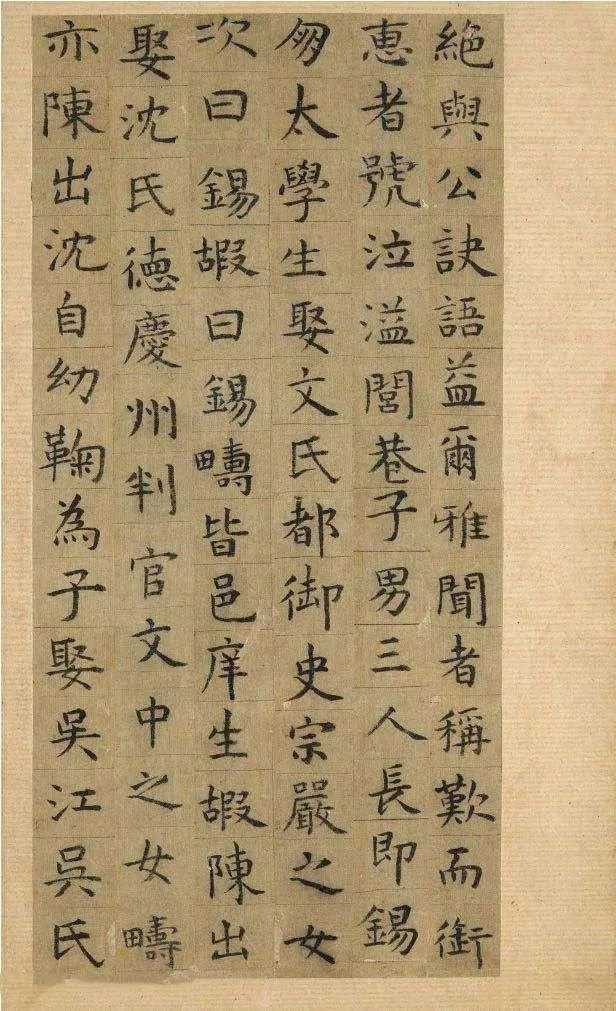 絕與公訣語益爾雅聞者稱歎而銜
惠者號泣溢閭巷子男三人長即錫
匆太學生娶文氏都御史宗嚴之女
次曰錫嘏曰錫疇皆邑庠生嘏陳出
娶沈氏德慶州判官文中之女疇
亦陳出沈自幼鞠為子娶吳江吳氏